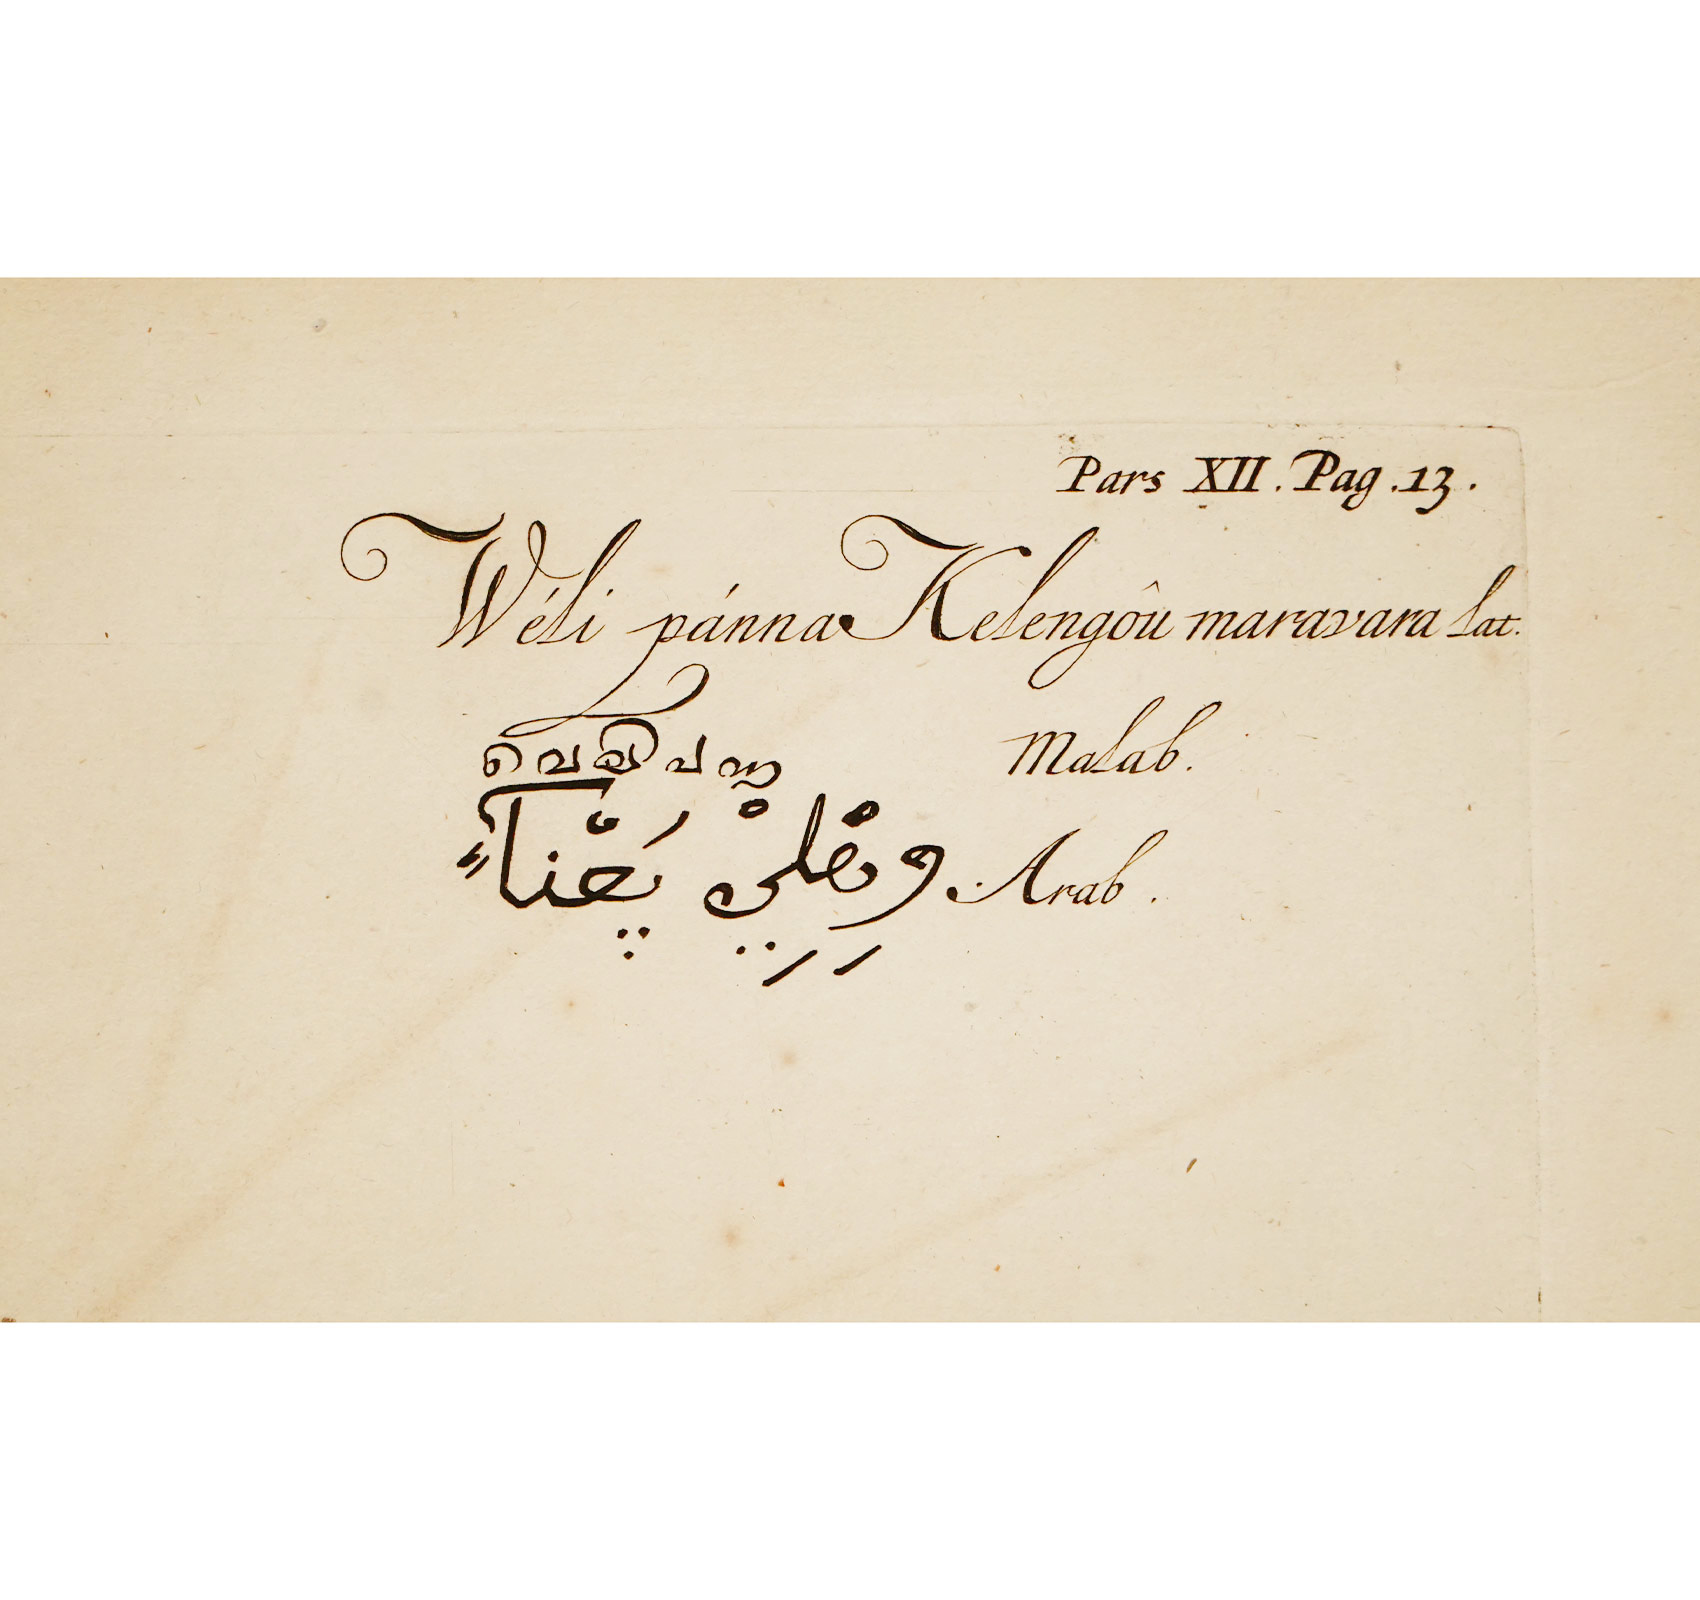 Pars XII. Pag. 13.
Wéli pánna Kelengôu maravara lat.
വെളിപന്ന Malab.
Arab.